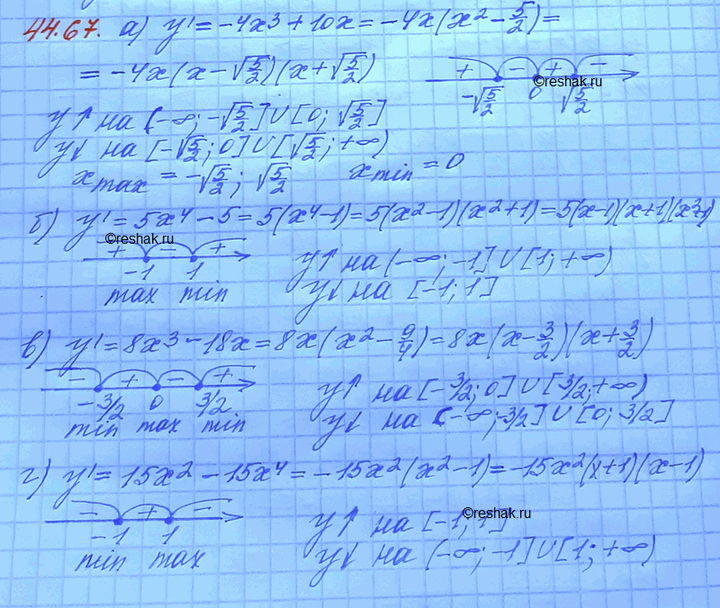 44.67. а) y' = -4x³ + 10x = -4x(x² - 5/2) =
= -4x(x - √5/2)(x + √5/2)
+ - + -
-√5/2 0 √5/2
©reshak.ru
y↑ на (-∞; -√5/2] U [0; √5/2]
y↓ на [-√5/2; 0] U [√5/2; +∞)
x max = -√5/2; √5/2 x min = 0
б) y' = 5x⁴ - 5 = 5(x⁴-1) = 5(x²-1)(x²+1) = 5(x-1)(x+1)(x²+1)
©reshak.ru
+ - +
-1 1
max min
y↑ на (-∞; -1] U [1; +∞)
y↓ на [-1; 1]
в) y' = 8x³ - 18x = 8x(x² - 9/4) = 8x(x - 3/2)(x + 3/2)
- + - +
-3/2 0 3/2
min max min
y↑ на [-3/2; 0] U [3/2; +∞)
y↓ на (-∞; -3/2] U [0; 3/2]
г) y' = 15x² - 15x⁴ = -15x²(x²-1) = -15x²(x+1)(x-1)
- + -
-1 1
min max
©reshak.ru
y↑ на [-1; 1]
y↓ на (-∞; -1] U [1; +∞)